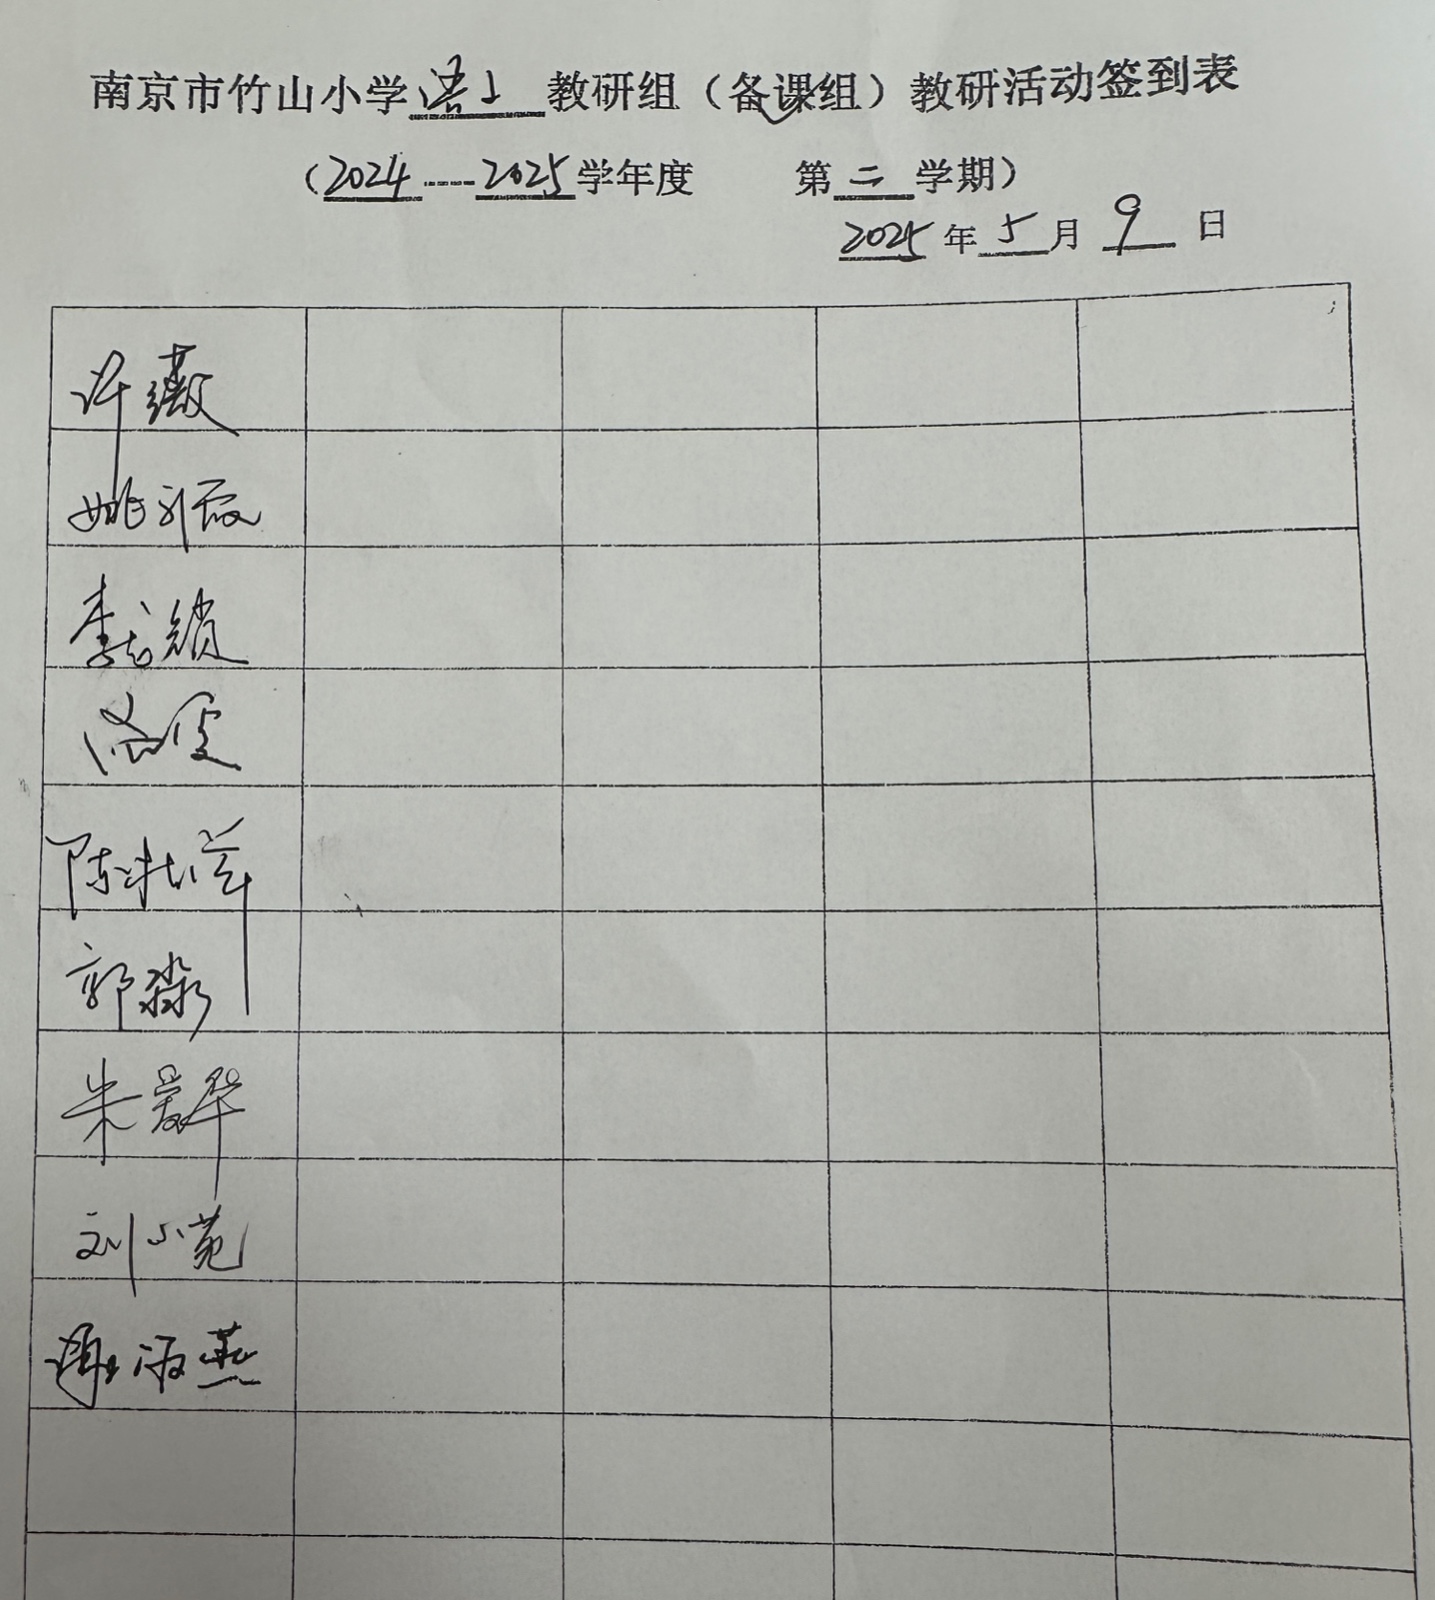 南京市竹山小学语文教研组（备课组）教研活动签到表
（2024----2025学年度 第二学期）
2025年5月9日
许薇
姚
李 锁
陈
郭淼
朱爱华
刘小苑
谢 燕